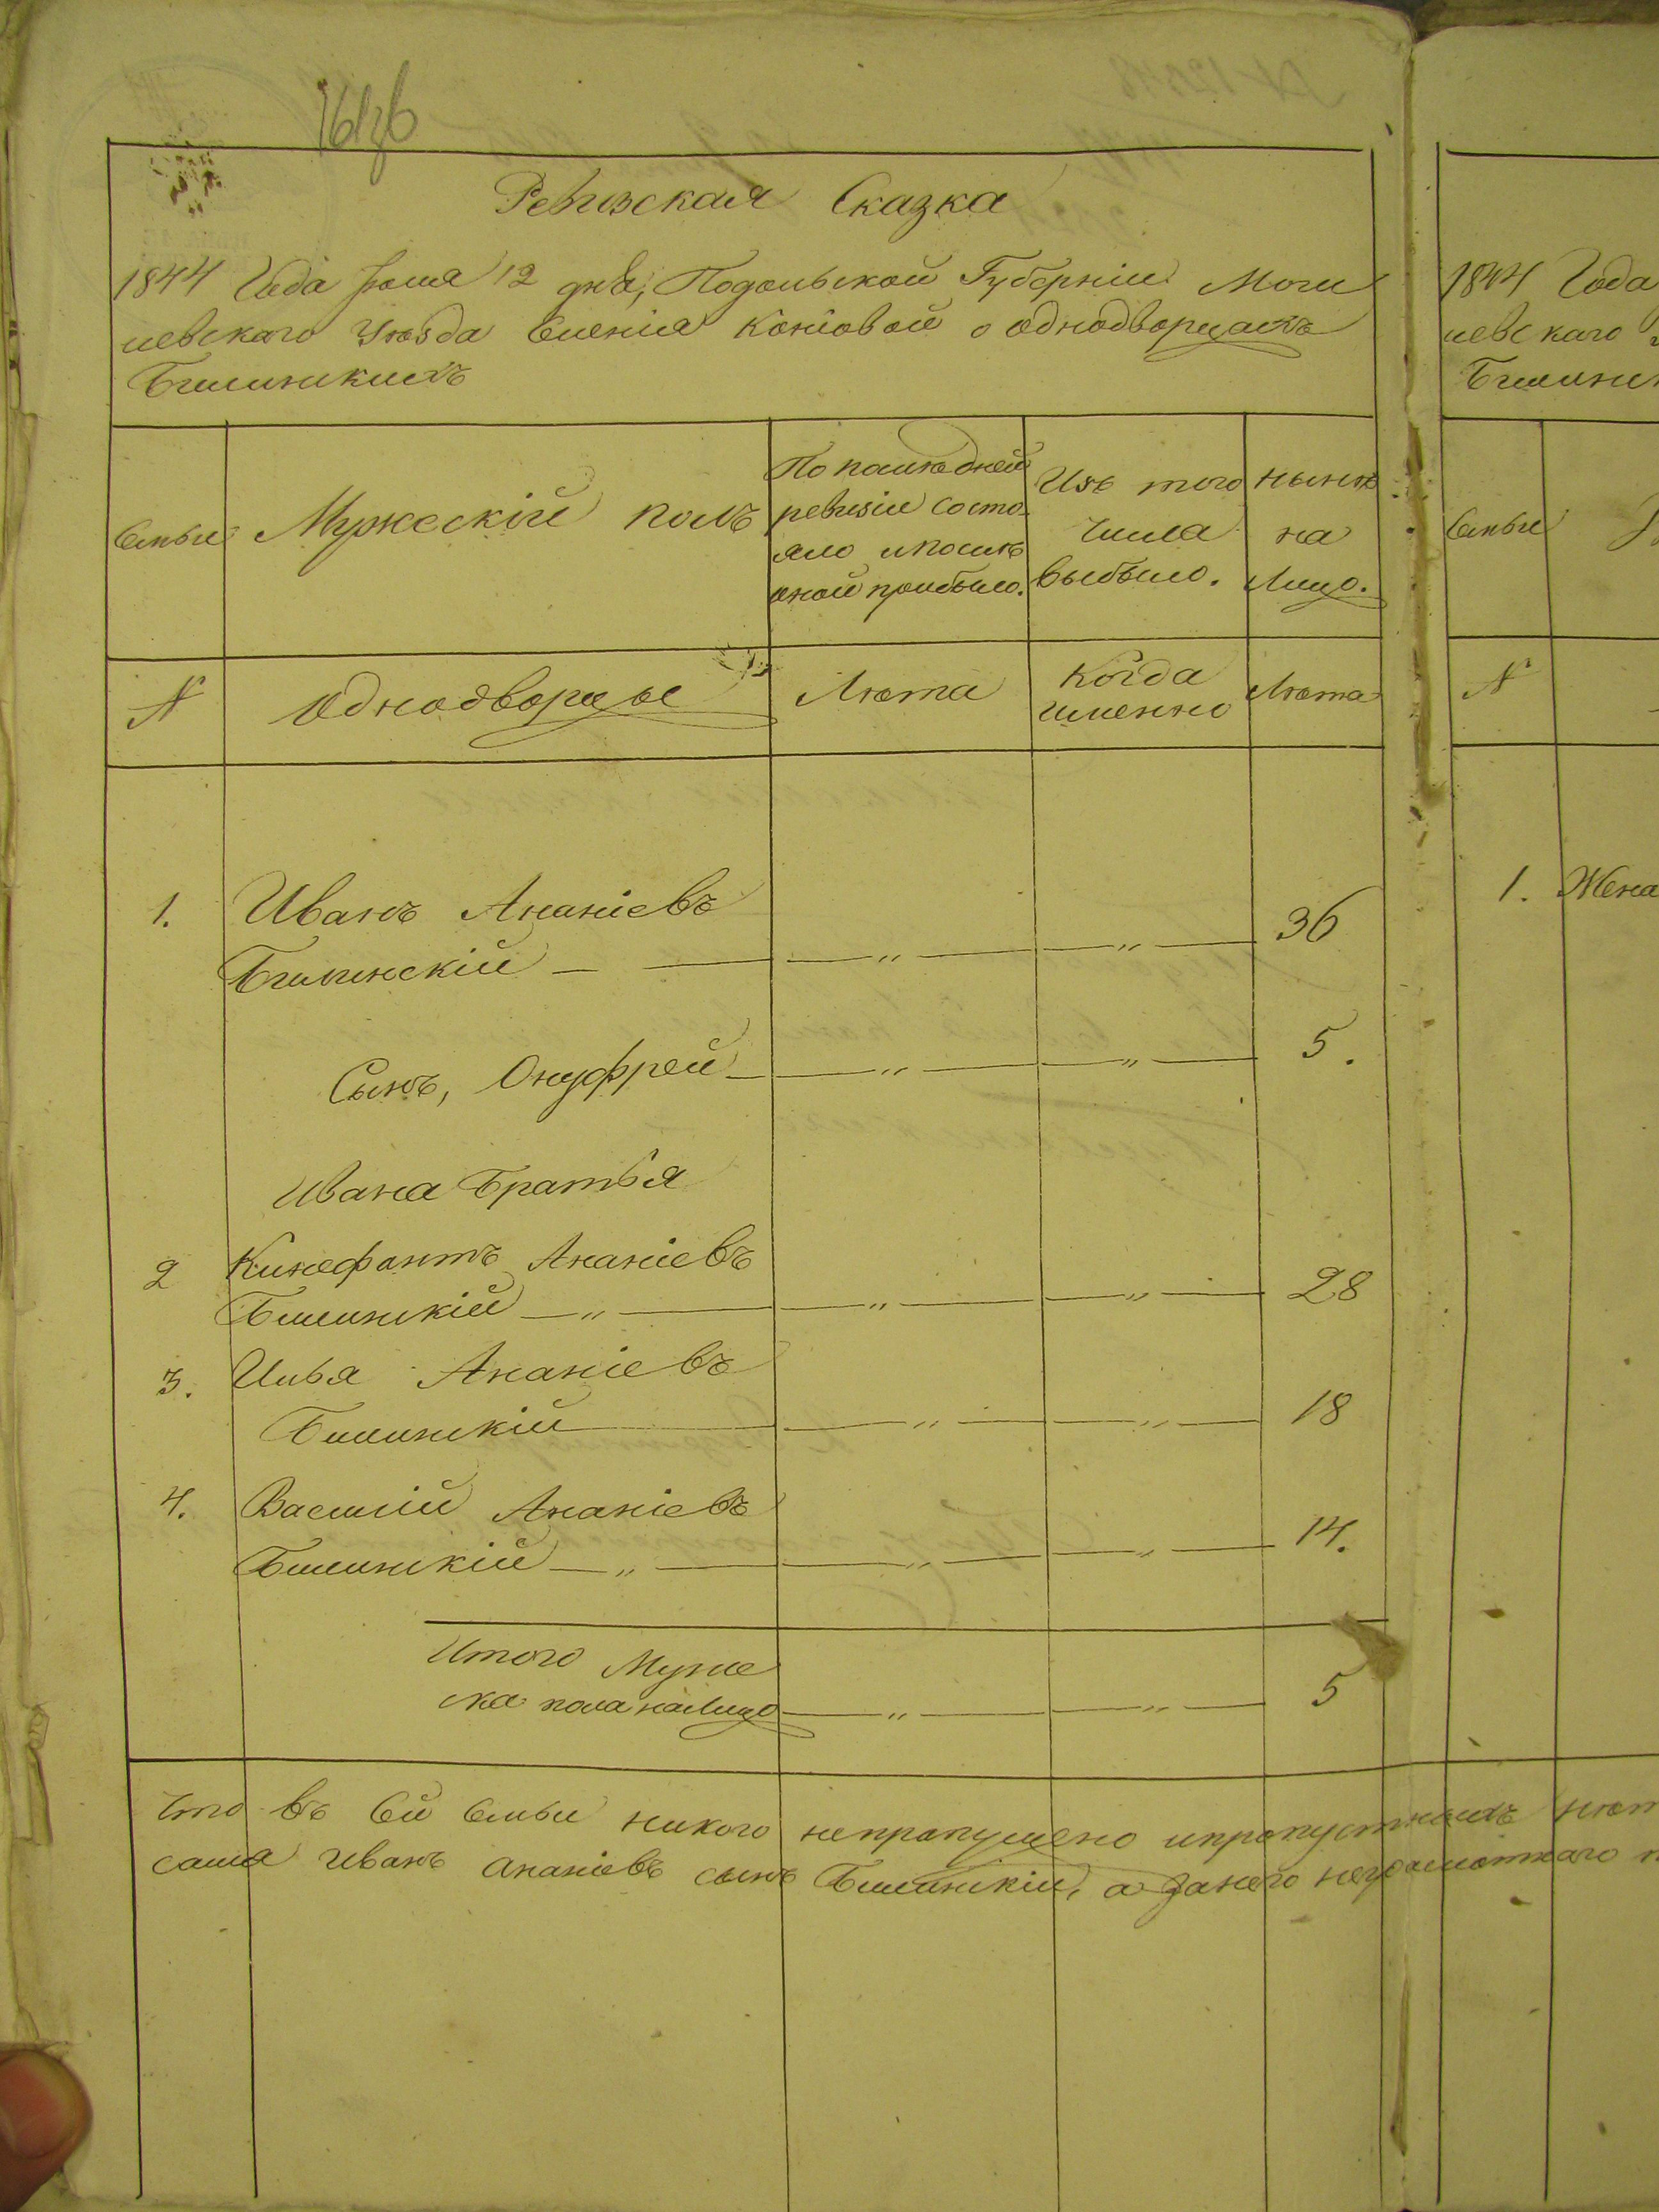 Ревизская Сказка
1844 Года Июля 12 дня, Подольской Губерніи Моги
левскаго Уѣзда Селенія Коніовой о однодворцахъ
Билинскихъ
Семьи
Мужескій полъ
По послѣдней
ревизіи состо
яло и послѣ
оной прибыло.
Изъ того
числа
выбыло.
нынѣ
на
Лицо.
№
Однодворцы
Лѣта
Когда
именно
Лѣта
1. Иванъ Ананіевъ
Билинскій — — „ — — „ — 36
Сынъ, Онуфрей — „ — — „ — 5.
Ивана Братья
2 Кинефантъ Ананіевъ
Билинскій — „ — — „ — — „ — 28
3. Илья Ананіевъ
Билинскій — — „ — — „ — 18
4. Василій Ананіевъ
Билинскій — „ — — „ — — „ — 14.
Итого Муже
ска пола на Лицо — „ — — „ — 5
Что въ Сей Семьи никого непропущено и
самъ Иванъ Ананіевъ сынъ Билинскій, а за него неграмотнаго
1844 Года
левскаго
Семьи
№
1. Жена